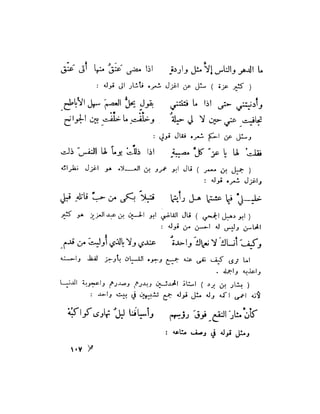 ما الدهر والناس إلّا مثل واردةٍ اذا مضى عَنَقٌ منها أتى عَنَق
( كثير عزة ) سئل عن اغزل شعره فأشار الى قوله :
وأدنيتني حتى اذا ما فتنتني بقولٍ يحلُّ العصمَ سهل الأباطحِ
تجافيتِ عني حين لا لي حيلةٌ وخلّفتِ ما خلّفتِ بين الجوانح
وسئل عن احكم شعره فقال قولي :
فقلت لها يا عزّ كلّ مصيبةٍ اذا ذلّلت يوماً لها النفسُ ذلّت
( جميل بن معمر ) قال ابو عمرو بن العـــلاء هو اغزل نظرائه
واغزل شعره قوله :
خليــليّ فيما عشتما هــل رأيتما قتيلاً بكى من حبّ قاتلهِ قبلي
( ابو دهبل الجمحي ) قال القاضي ابو الحسين بن عبد العزيز هو كثير
المحاسن وليس له احسن من قوله :
وكيفَ أنساكَ لا نعماكَ واحدةٌ عندي ولا بالذي أوليتَ من قدمِ
اما ترى كيف نفى عنه جميع وجوه النسيان بأوجز لفظ واحسنه
واعذبه واجمله .
( بشار بن برد ) استاذ المحدثـين وبدرهم وصدرهم واعجوبة الدنيــا
لأنه اعمى اكمه وله مثل قوله جمع تشبيهين في بيته واحد :
كأنّ مثارَ النقعِ فوقَ رؤسِهم وأسيافَنا ليلٌ تهاوى كواكبُهْ
ومثل قوله في وصف متاعه :
١٠٧